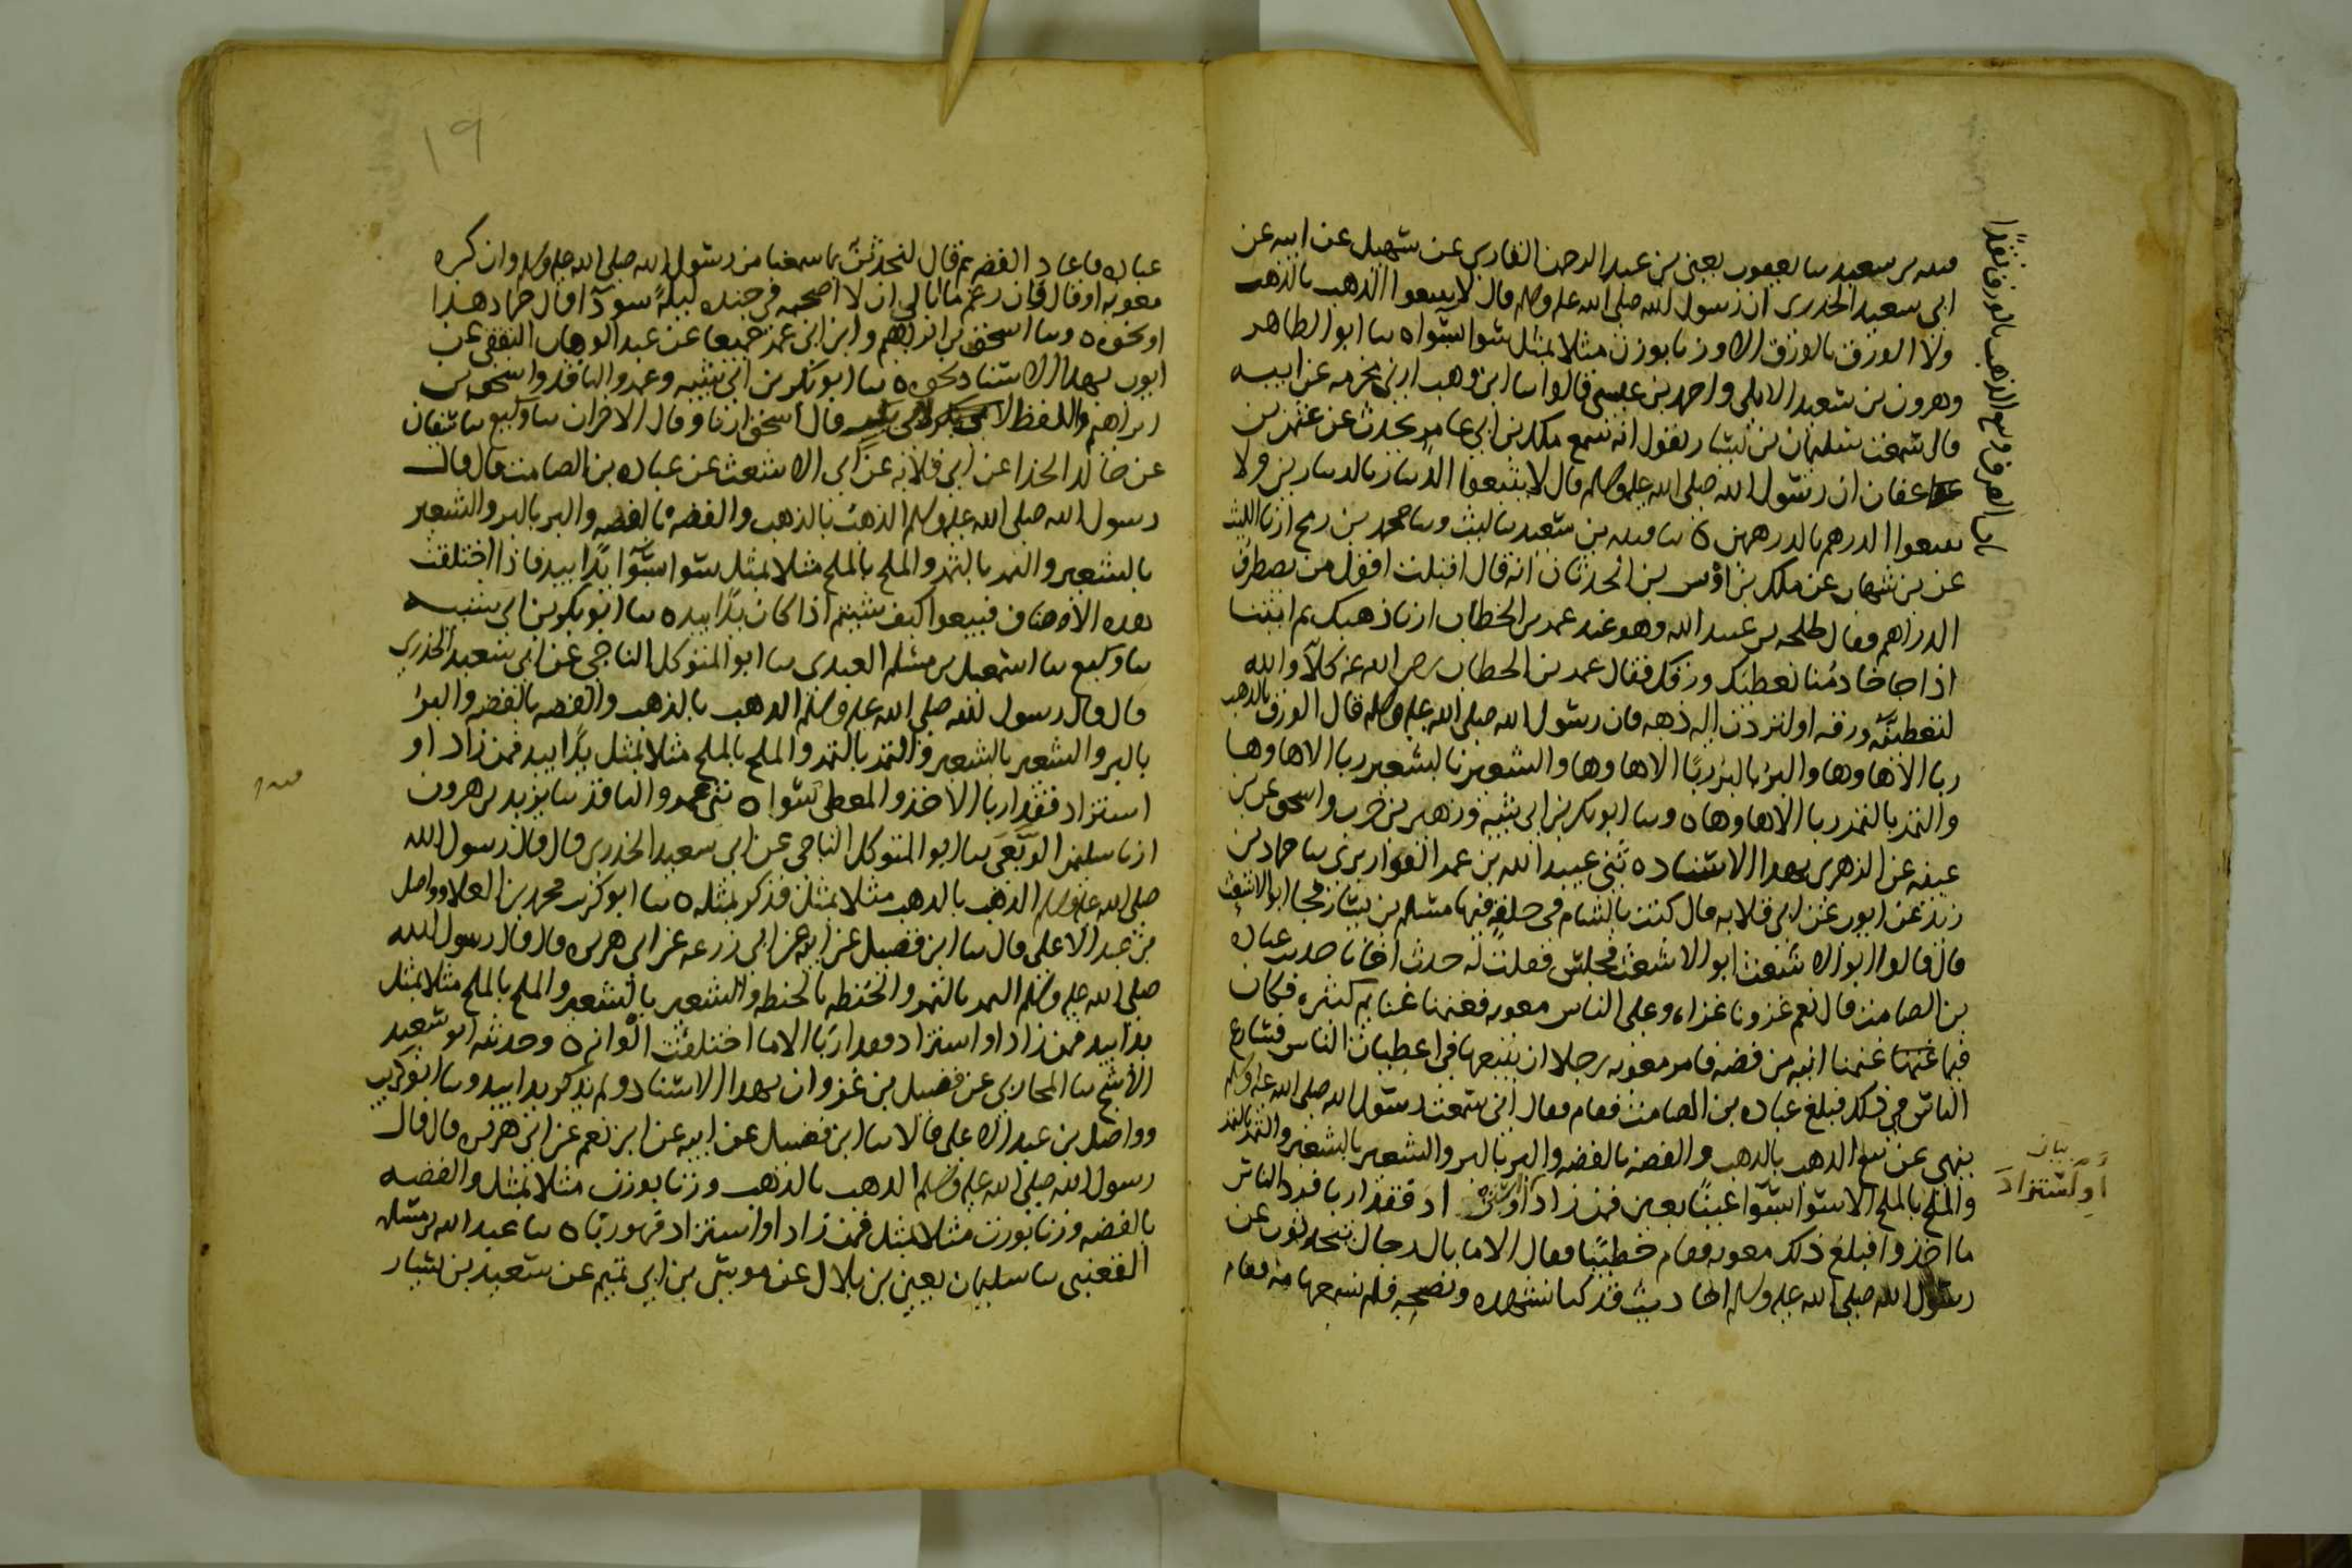 باب الصرف وبيع الذهب بالورق نقدًا
قتيبه بن سعيد نا يعقوب يعني بن عبد الرحمن القاري عن سهيل عن ابيه عن
ابي سعيد الخدري ان رسول الله صلى الله عليه وسلم قال لا تبيعوا الذهب بالذهب
ولا الورق بالورق الا وزنا بوزن مثلا بمثل سوا بسوا ه نا ابو الطاهر
وهرون بن سعيد الايلي واحمد بن عيسى قالوا نا ابن وهب ارني مخرمه عن ابيه
قال سمعت سليمان بن يسار يقول انه سمع ملك بن ابي عامر يحدث عن عثمن بن
عفان ان رسول الله صلى الله عليه وسلم قال لا تبيعوا الدينار بالدينارين ولا
تبيعوا الدرهم بالدرهمين ه نا قتيبه بن سعيد نا ليث ونا محمد بن رمح ارنا الليث
عن بن شهاب عن ملك بن اوس بن الحدثان انه قال اقبلت اقول من يصطرف
الدراهم فقال طلحه بن عبيد الله وهو عند عمر بن الخطاب ارنا ذهبك ثم ايتنا
اذا جا خادمنا نعطيك ورقك فقال عمر بن الخطاب رضي الله عنه كلا والله
لتعطينه ورقه او لتردن اليه ذهبه فان رسول الله صلى الله عليه وسلم قال الورق بالذهب
ربا الا ها وها والبر بالبر ربًا الا ها وها والشعير بالشعير ربا الا ها وها
والتمر بالتمر ربا الا ها وها ه ونا ابو بكر بن ابي شيبه وزهير بن حرب واسحق عن بن
عيينه عن الزهري بهذا الاسناد ه ثني عبيد الله بن عمر القواريري نا حماد بن
زيد عن ايوب عن ابي قلابه قال كنت بالشام في حلقه فيها مسلم بن يسار فجا ابو الاشعث
قال قالوا ابو الاشعث ابو الاشعث فجلس فقلت له حدث اخانا حديث عباده
بن الصامت قال نعم غزونا غزاه وعلى الناس معويه فغنمنا غنايم كثيره فكان
فيما غنمنا انيه من فضه فامر معويه رجلا ان يبيعها في اعطيات الناس فتسارع
الناس في ذلك فبلغ عباده بن الصامت فقام فقال اني سمعت رسول الله صلى الله عليه وسلم
ينهى عن بيع الذهب بالذهب والفضه بالفضه والبر بالبر والشعير بالشعير والتمر بالتمر
والملح بالملح الا سوا بسوا عينًا بعين فمن زاد او ازداد فقد اربا فرد الناس
او استزاد
ما اخذوا فبلغ ذلك معويه فقام خطيبًا فقال الا ما بال رجال يتحدثون عن
رسول الله صلى الله عليه وسلم احاديث قد كنا نشهده ونصحبه فلم نسمعها منه فقام
١٩
عباده فاعاد القصه ثم قال لنحدثن بما سمعنا من رسول الله صلى الله عليه وسلم وان كره
معويه او قال وان رغم ما ابالي ان لا اصحبه في جنده ليلةً سودآ قال حماد هذا
او نحوه ه ونا اسحق بن ابراهيم وابن ابي عمر جميعا عن عبد الوهاب الثقفي عن
ايوب بهذا الاسناد نحوه ه نا ابو بكر بن ابي شيبه وعمرو الناقد واسحق بن
ابراهيم واللفظ لابن ابي شيبه قال اسحق ارنا وقال الاخران نا وكيع نا سفيان
عن خالد الحذا عن ابي قلابه عن ابي الاشعث عن عباده بن الصامت قال قال
رسول الله صلى الله عليه وسلم الذهب بالذهب والفضه بالفضه والبر بالبر والشعير
بالشعير والتمر بالتمر والملح بالملح مثلا بمثل سوا بسوآ يدًا بيد فاذا اختلفت
هذه الاصناف فبيعوا كيف شيتم اذا كان يدًا بيد ه نا ابو بكر بن ابي شيبه
نا وكيع نا اسمعيل بن مسلم العبدي نا ابو المتوكل الناجي عن ابي سعيد الخدري
قال قال رسول الله صلى الله عليه وسلم الذهب بالذهب والفضه بالفضه والبر
بالبر والشعير بالشعير والتمر بالتمر والملح بالملح مثلا بمثل يدًا بيد فمن زاد او
استزاد فقد اربا الاخذ والمعطي سوا ه ثني عمرو الناقد نا يزيد بن هرون
ارنا سليمن الربعي نا ابو المتوكل الناجي عن ابي سعيد الخدري قال قال رسول الله
صلى الله عليه وسلم الذهب بالذهب مثلا بمثل فذكر بمثله ه نا ابو كريب محمد بن العلا وواصل
بن عبد الاعلى قال نا ابن فضيل عن ابيه عن ابي زرعه عن ابي هريره قال قال رسول الله
صلى الله عليه وسلم التمر بالتمر والحنطه بالحنطه والشعير بالشعير والملح بالملح مثلا بمثل
يدا بيد فمن زاد او استزاد فقد اربا الا ما اختلفت الوانه ه وحدثنيه ابو سعيد
الاشج نا المحاربي عن فضيل بن غزوان بهذا الاسناد ولم يذكر يدا بيد ونا ابو كريب
وواصل بن عبد الاعلى قالا نا ابن فضيل عن ابيه عن ابن نعم عن ابي هريره قال قال
رسول الله صلى الله عليه وسلم الذهب بالذهب وزنا بوزن مثلا بمثل والفضه
بالفضه وزنا بوزن مثلا بمثل فمن زاد او استزاد فهو ربا ه نا عبد الله بن مسلمه
القعنبي نا سليمان يعني بن بلال عن موسى بن ابي تميم عن سعيد بن يسار